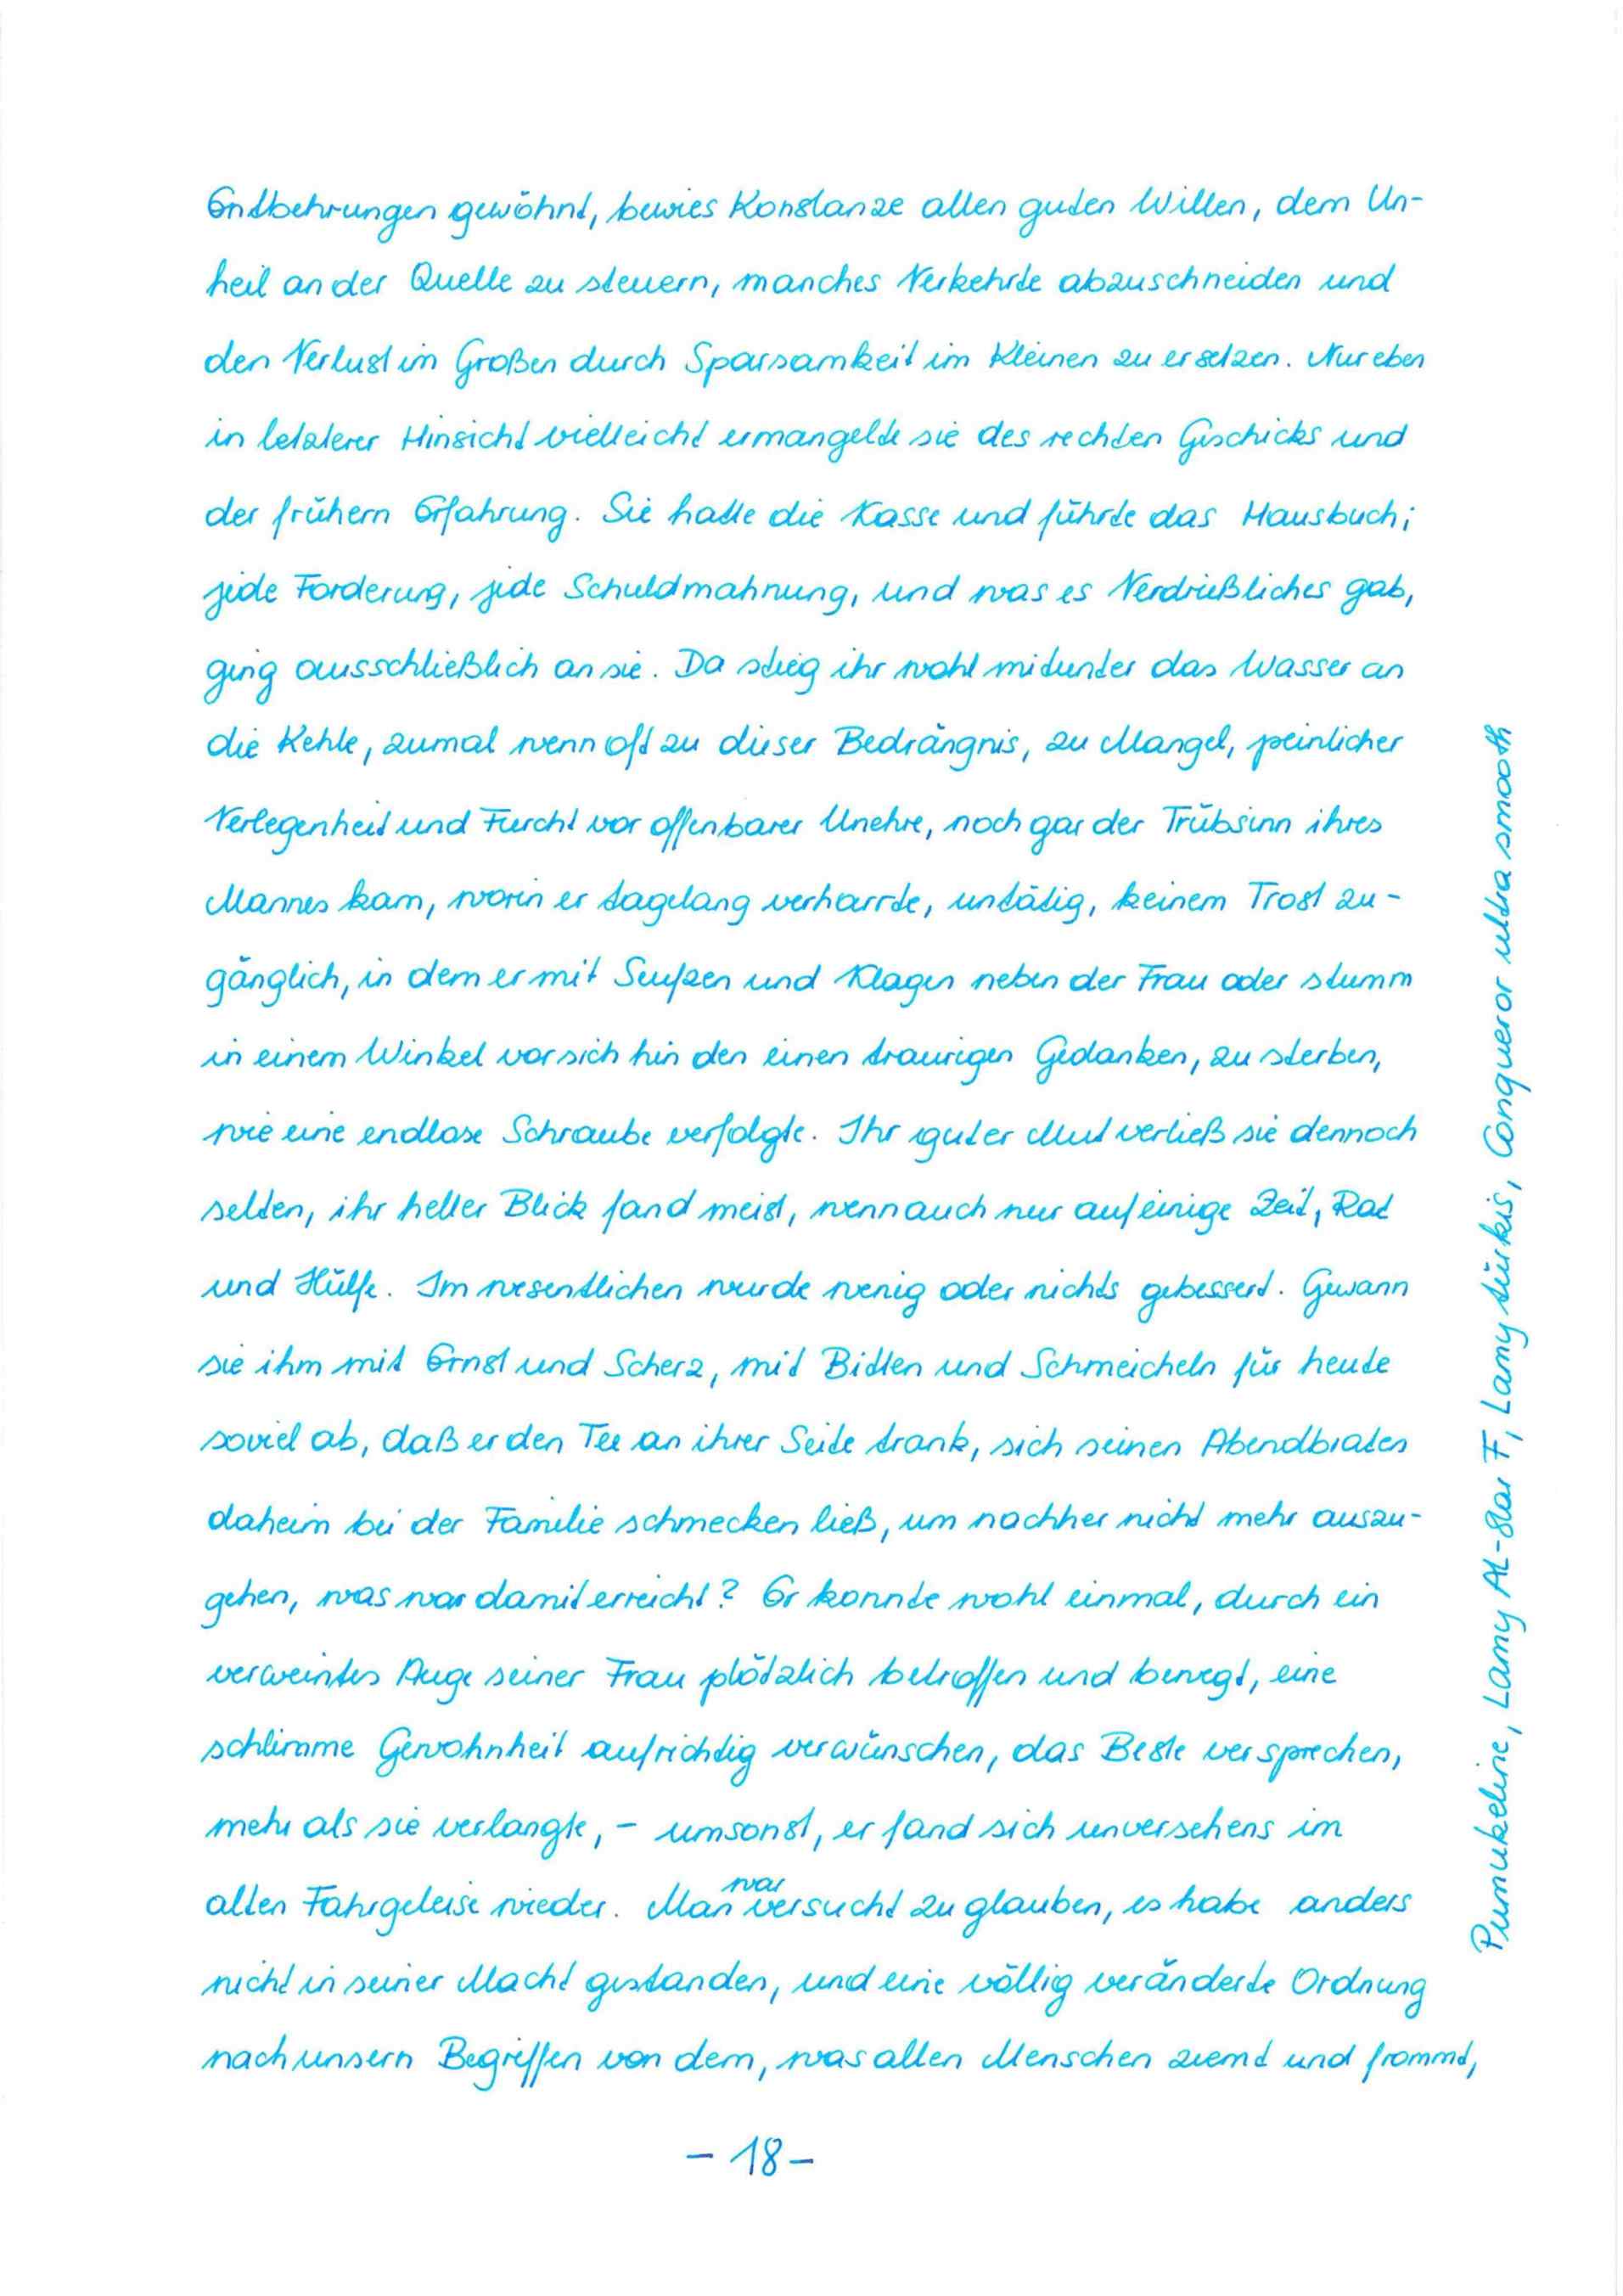 Entbehrungen gewöhnt, bewies Konstanze allen guten Willen, dem Un-
heil an der Quelle zu steuern, manches Verkehrte abzuschneiden und
den Verlust im Großen durch Sparsamkeit im Kleinen zu ersetzen. Nur eben
in letzterer Hinsicht vielleicht ermangelte sie des rechten Geschicks und
der frühern Erfahrung. Sie hatte die Kasse und führte das Hausbuch;
jede Forderung, jede Schuldmahnung, und was es Verdrießliches gab,
ging ausschließlich an sie. Da stieg ihr wohl mitunter das Wasser an
die Kehle, zumal wenn oft zu dieser Bedrängnis, zu Mangel, peinlicher
Verlegenheit und Furcht vor offenbarer Unehre, noch gar der Trübsinn ihres
Mannes kam, worin er tagelang verharrte, untätig, keinem Trost zu-
gänglich, in dem er mit Seufzen und Klagen neben der Frau oder stumm
in einem Winkel vor sich hin den einen traurigen Gedanken, zu sterben,
wie eine endlose Schraube verfolgte. Ihr guter Mut verließ sie dennoch
selten, ihr heller Blick fand meist, wenn auch nur auf einige Zeit, Rat
und Hülfe. Im wesentlichen wurde wenig oder nichts gebessert. Gewann
sie ihm mit Ernst und Scherz, mit Bitten und Schmeicheln für heute
soviel ab, daß er den Tee an ihrer Seite trank, sich seinen Abendbraten
daheim bei der Familie schmecken ließ, um nachher nicht mehr auszu-
gehen, was war damit erreicht? Er konnte wohl einmal, durch ein
verweintes Auge seiner Frau plötzlich betroffen und bewegt, eine
schlimme Gewohnheit aufrichtig verwünschen, das Beste versprechen,
mehr als sie verlangte, – umsonst, er fand sich unversehens im
alten Fahrgeleise wieder. Man war versucht zu glauben, es habe anders
nicht in seiner Macht gestanden, und eine völlig veränderte Ordnung
nach unsern Begriffen von dem, was allen Menschen ziemt und frommt,
- 18 -
Pumukeline, Lamy AL-Star F, Lamy türkis, Conqueror ultra smooth